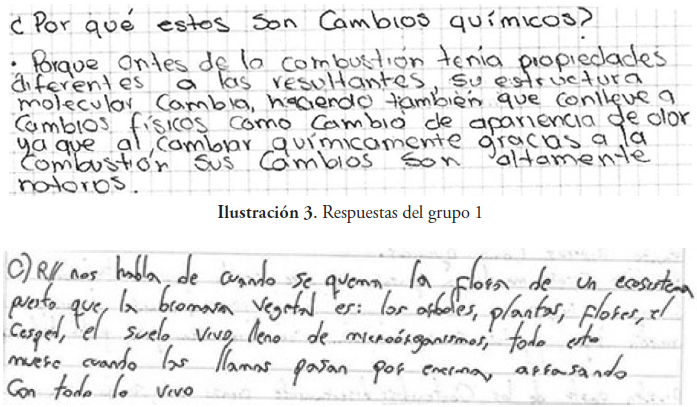 ¿Por qué estos son cambios químicos?
· Porque antes de la combustión tenía propiedades
diferentes a las resultantes, su estructura
molecular cambia, haciendo también que conlleve a
cambios físicos como cambio de apariencia de olor
ya que al cambiar químicamente gracas a la
combustión sus cambios son altamente
notoros.
Ilustración 3. Respuestas del grupo 1
C) R// nos habla de cuando se quema la flora de un ecosistema
puesto que, la biomasa vegetal es: los arboles, plantas, flores, el
cesped, el suelo vivo, lleno de microorganismos, todo esto
muere cuando las llamas pasan por encima, arrasando
con todo lo vivo